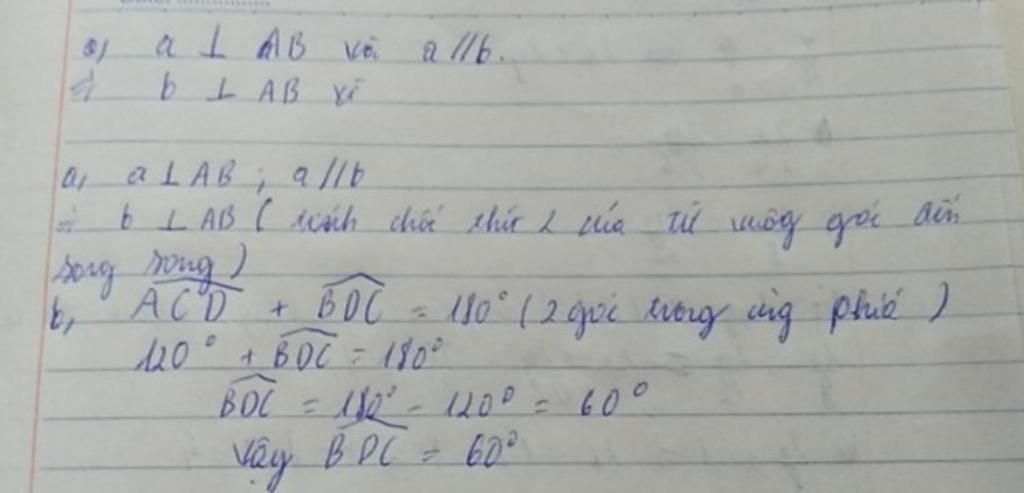 a) a ⊥ AB và a // b.
=> b ⊥ AB vì
a, a ⊥ AB ; a // b
=> b ⊥ AB ( tính chất thứ 2 của từ vuông góc đến
song song )
b, \widehat{ACD} + \widehat{BDC} = 180° ( 2 góc trong cùng phía )
120° + \widehat{BDC} = 180°
\widehat{BDC} = 180° - 120° = 60°
Vậy \widehat{BDC} = 60°